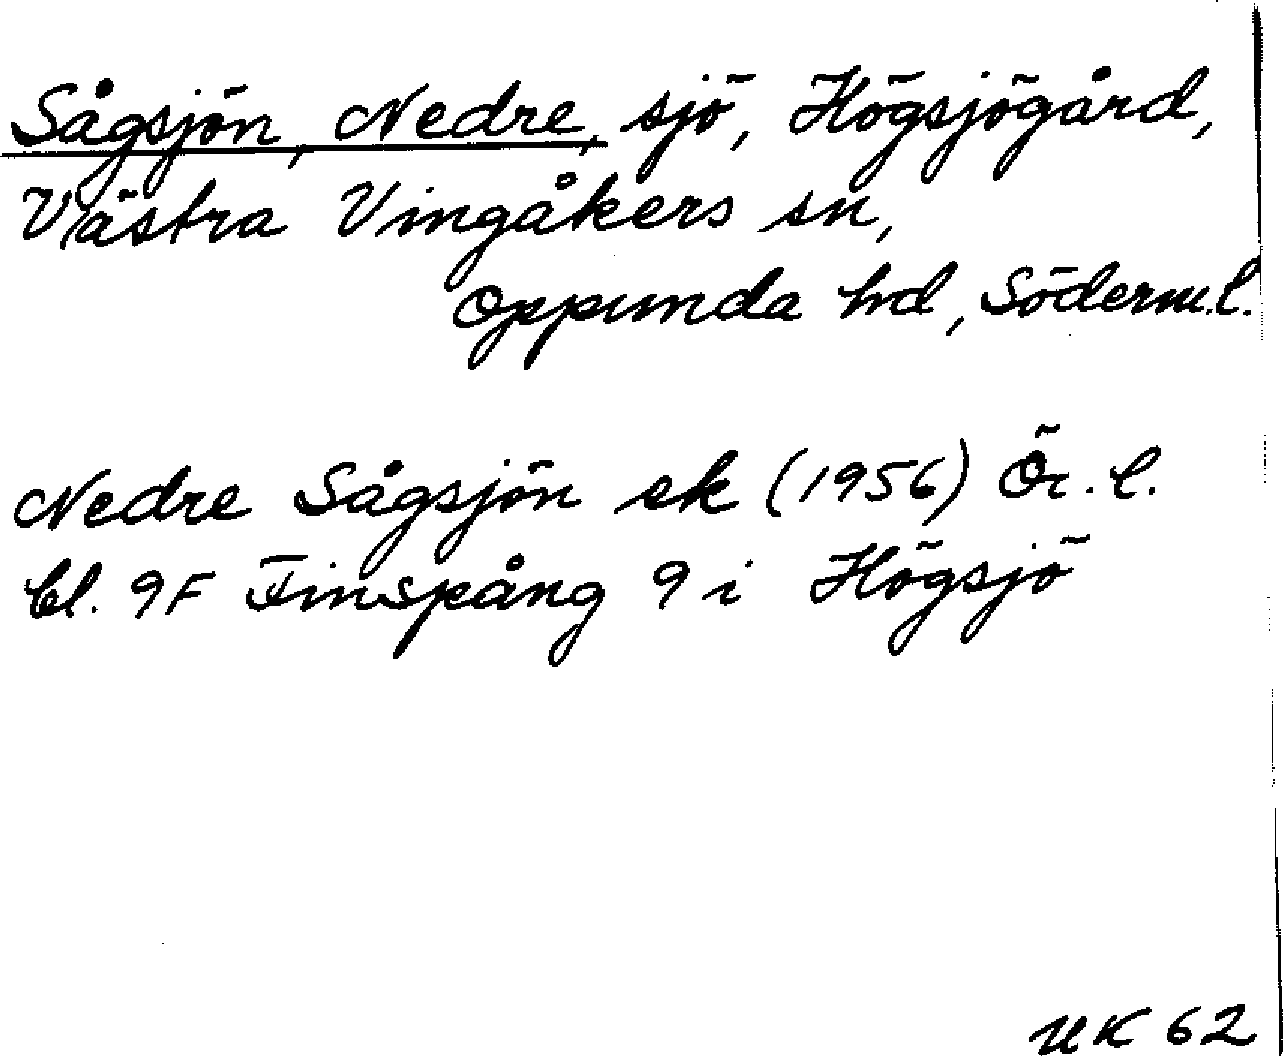 Sågsjön, Nedre, sjö, Högsjögård,
Västra Vingåkers sn,
Oppunda hd, Söderm.l.
Nedre Sågsjön ek (1956) Ör.l.
bl. 9F Finspång 9 i Högsjö
UK 62